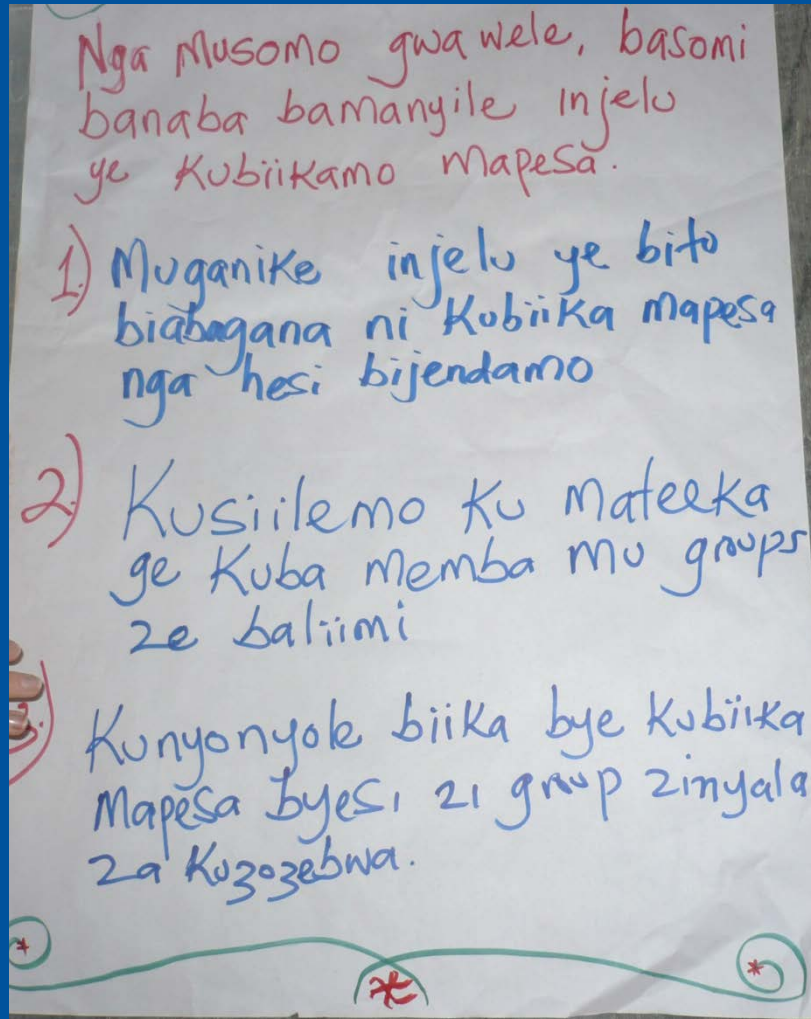 Nga Musomo gwawele, basomi
banaba bamanyile injelu
ye Kubiikamo Mapesa.
1.) Muganike injelu ye bito
biabagana ni Kubiika mapesa
nga hesi bijendamo
2.) Kusiilemo Ku Mateeka
ge Kuba Memba mu groups
ze baliimi
3.) Kunyonyole biika bye Kubiika
Mapesa byesi zi group zinyala
za Kuzozebwa.